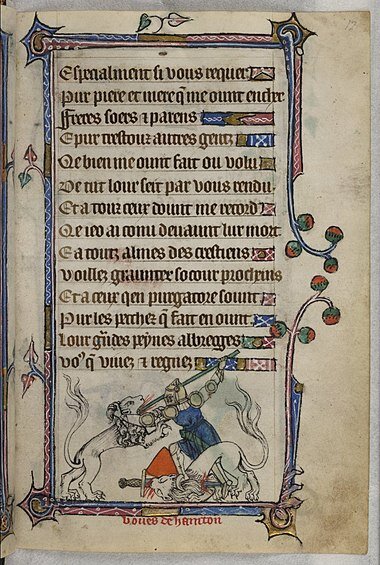 Especialment si vous requer
Pur piere et mere q̄ me ount endre
ffreres soers ⁊ parens
E pur trestouz autres gentz
Qe bien me ount fait ou volu
De tut lour seit par vous rendu
Et a touz ceux dount me record
Qe ieo ai conu deuaunt lur mort
E a toutz almes des crestiens
Voillez graunter socour procheins
Et a ceux qen purgatore sount
Pur les pechez q̄ fait en ount
Lour g̃udes peynes alleegges
Vo᷒ q̄ viuez ⁊ regnez
boues de hamtou